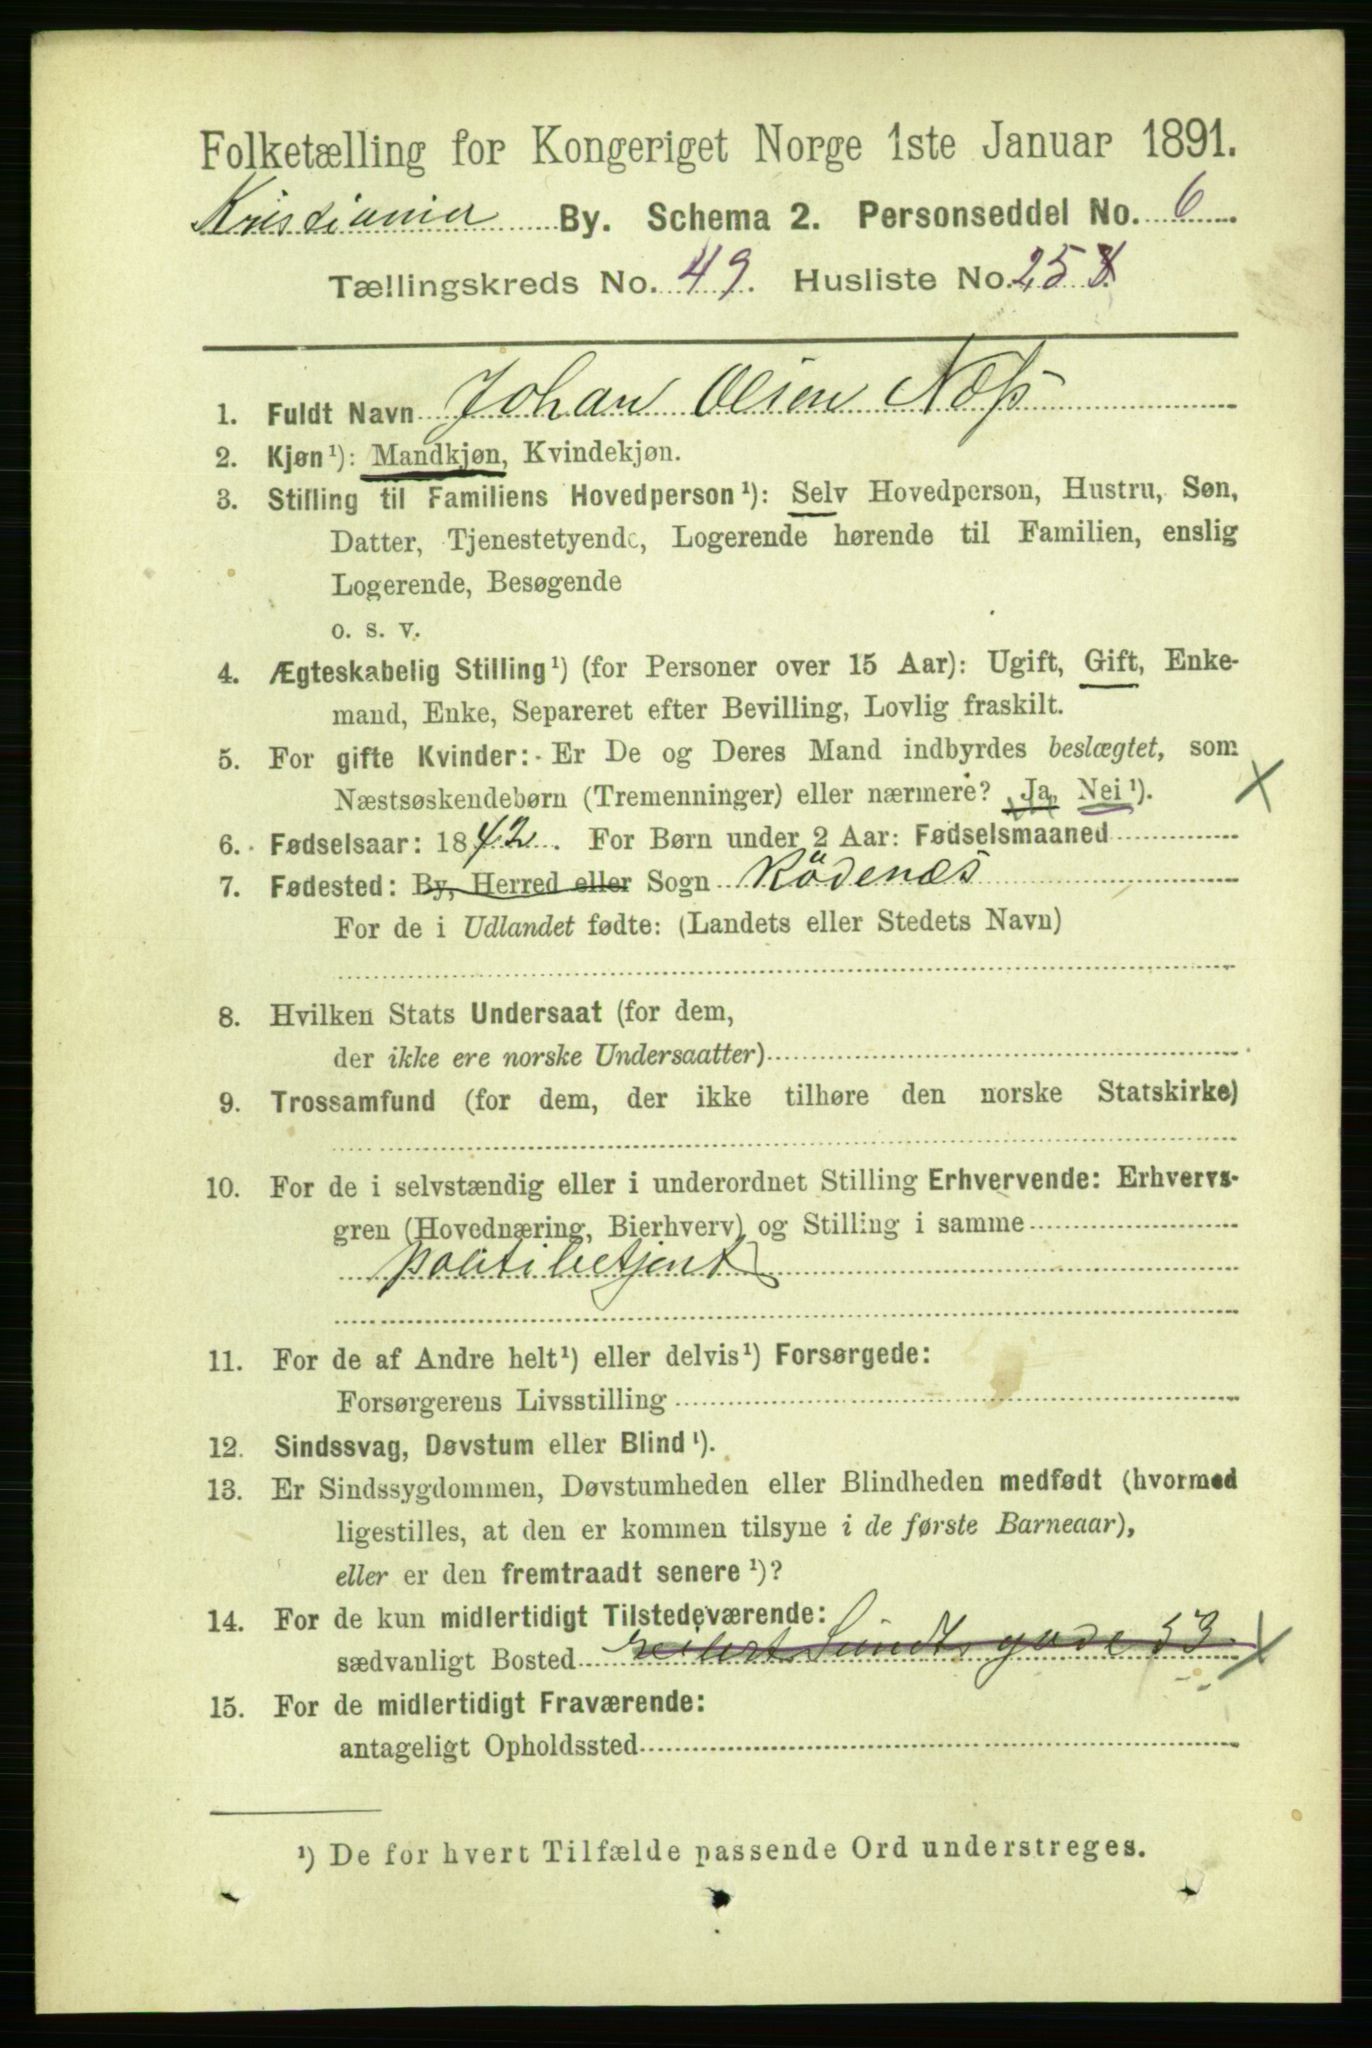 Folketælling for Kongeriget Norge 1ste Januar 1891.
Kristiania By. Schema 2. Personseddel No. 6
Tællingskreds No. 49. Husliste No. 25
1. Fuldt Navn Johan Olsen Næss
2. Kjøn¹): Mandkjøn, Kvindekjøn.
3. Stilling til Familiens Hovedperson¹): Selv Hovedperson, Hustru, Søn,
Datter, Tjenestetyende, Logerende hørende til Familien, enslig
Logerende, Besøgende
o. s. v.
4. Ægteskabelig Stilling¹) (for Personer over 15 Aar): Ugift, Gift, Enke-
mand, Enke, Separeret efter Bevilling, Lovlig fraskilt.
5. For gifte Kvinder: Er De og Deres Mand indbyrdes beslægtet, som
Næstsøskendebørn (Tremenninger) eller nærmere? Ja, Nei¹).
6. Fødselsaar: 1842. For Børn under 2 Aar: Fødselsmaaned
7. Fødested: By, Herred eller Sogn Rödenæs
For de i Udlandet fødte: (Landets eller Stedets Navn)
8. Hvilken Stats Undersaat (for dem,
der ikke ere norske Undersaatter)
9. Trossamfund (for dem, der ikke tilhøre den norske Statskirke)
10. For de i selvstændig eller i underordnet Stilling Erhvervende: Erhvervs-
gren (Hovednæring, Bierhverv) og Stilling i samme
politibetjent
11. For de af Andre helt¹) eller delvis¹) Forsørgede:
Forsørgerens Livsstilling
12. Sindssvag, Døvstum eller Blind¹).
13. Er Sindssygdommen, Døvstumheden eller Blindheden medfødt (hvormed
ligestilles, at den er kommen tilsyne i de første Barneaar),
eller er den fremtraadt senere¹)?
14. For de kun midlertidigt Tilstedeværende:
sædvanligt Bosted Eilert Sundts gade 53
15. For de midlertidigt Fraværende:
antageligt Opholdssted
¹) De for hvert Tilfælde passende Ord understreges.